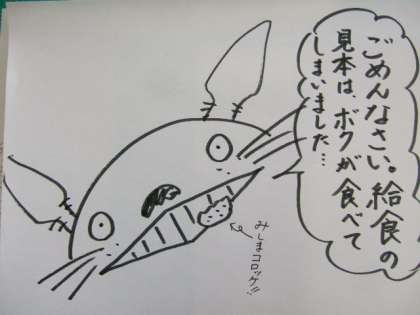 ごめんなさい。給食の
見本は、ボクが食べて
しまいました…
みしまコロッケ!!